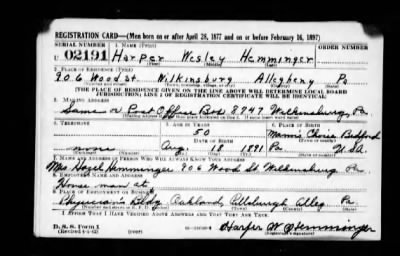 REGISTRATION CARD—(Men born on or after April 28, 1877 and on or before February 16, 1897)
SERIAL NUMBER 1. NAME (Print)
U 02191 Harper Wesley Hemminger
(First) (Middle) (Last)
2. PLACE OF RESIDENCE (Print)
906 Wood St Wilkinsburg Allegheny Pa
(Number and street) (Town, township, village, or city) (County) (State)
[THE PLACE OF RESIDENCE GIVEN ON THE LINE ABOVE WILL DETERMINE LOCAL BOARD
JURISDICTION; LINE 2 OF REGISTRATION CERTIFICATE WILL BE IDENTICAL]
3. MAILING ADDRESS
Same or Post Office Box 8747 Wilkinsburg, Pa
[Mailing address if other than place indicated on line 2. If same insert word same]
4. TELEPHONE 5. AGE IN YEARS 6. PLACE OF BIRTH
50 Manns Choice Bedford
DATE OF BIRTH
none Aug. 18 1891 Pa U.S.
7. NAME AND ADDRESS OF PERSON WHO WILL ALWAYS KNOW YOUR ADDRESS
Mrs Hazel Hemminger 906 Wood St Wilkinsburg Pa.
8. EMPLOYER'S NAME AND ADDRESS
House man at
9. PLACE OF EMPLOYMENT OR BUSINESS
Physician's Bldg Oakland Pittsburgh Alleg Pa.
I AFFIRM THAT I HAVE VERIFIED ABOVE ANSWERS AND THAT THEY ARE TRUE.
D. S. S. Form 1
(Revised 4-1-42) (over)
Harper W Hemminger